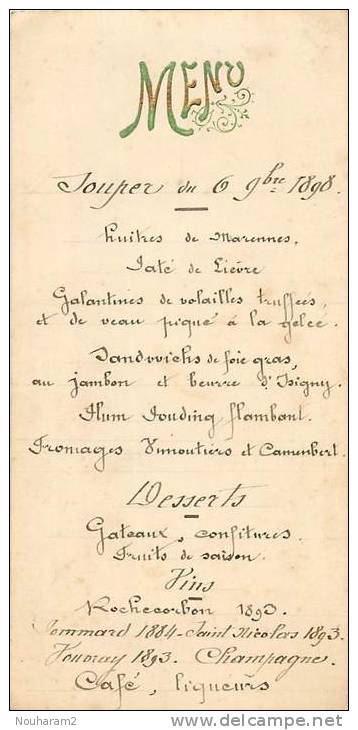 MENU
Souper du 6 9bre 1898.
Huîtres de Marennes,
Pâté de Lièvre
Galantines de volailles truffées,
et de veau piqué à la gelée.
Sandwichs de foie gras,
au jambon et beurre d'Isigny.
Plum Pouding flambant.
Fromages Vimoutiers et Camembert.
Desserts
Gateaux, confitures.
Fruits de saison.
Vins
Rochecorbon 1893.
Pommard 1884 - Saint Nicolas 1893.
Vouvray 1893. Champagne.
Café, liqueurs
Nouharam2
delcampe.net